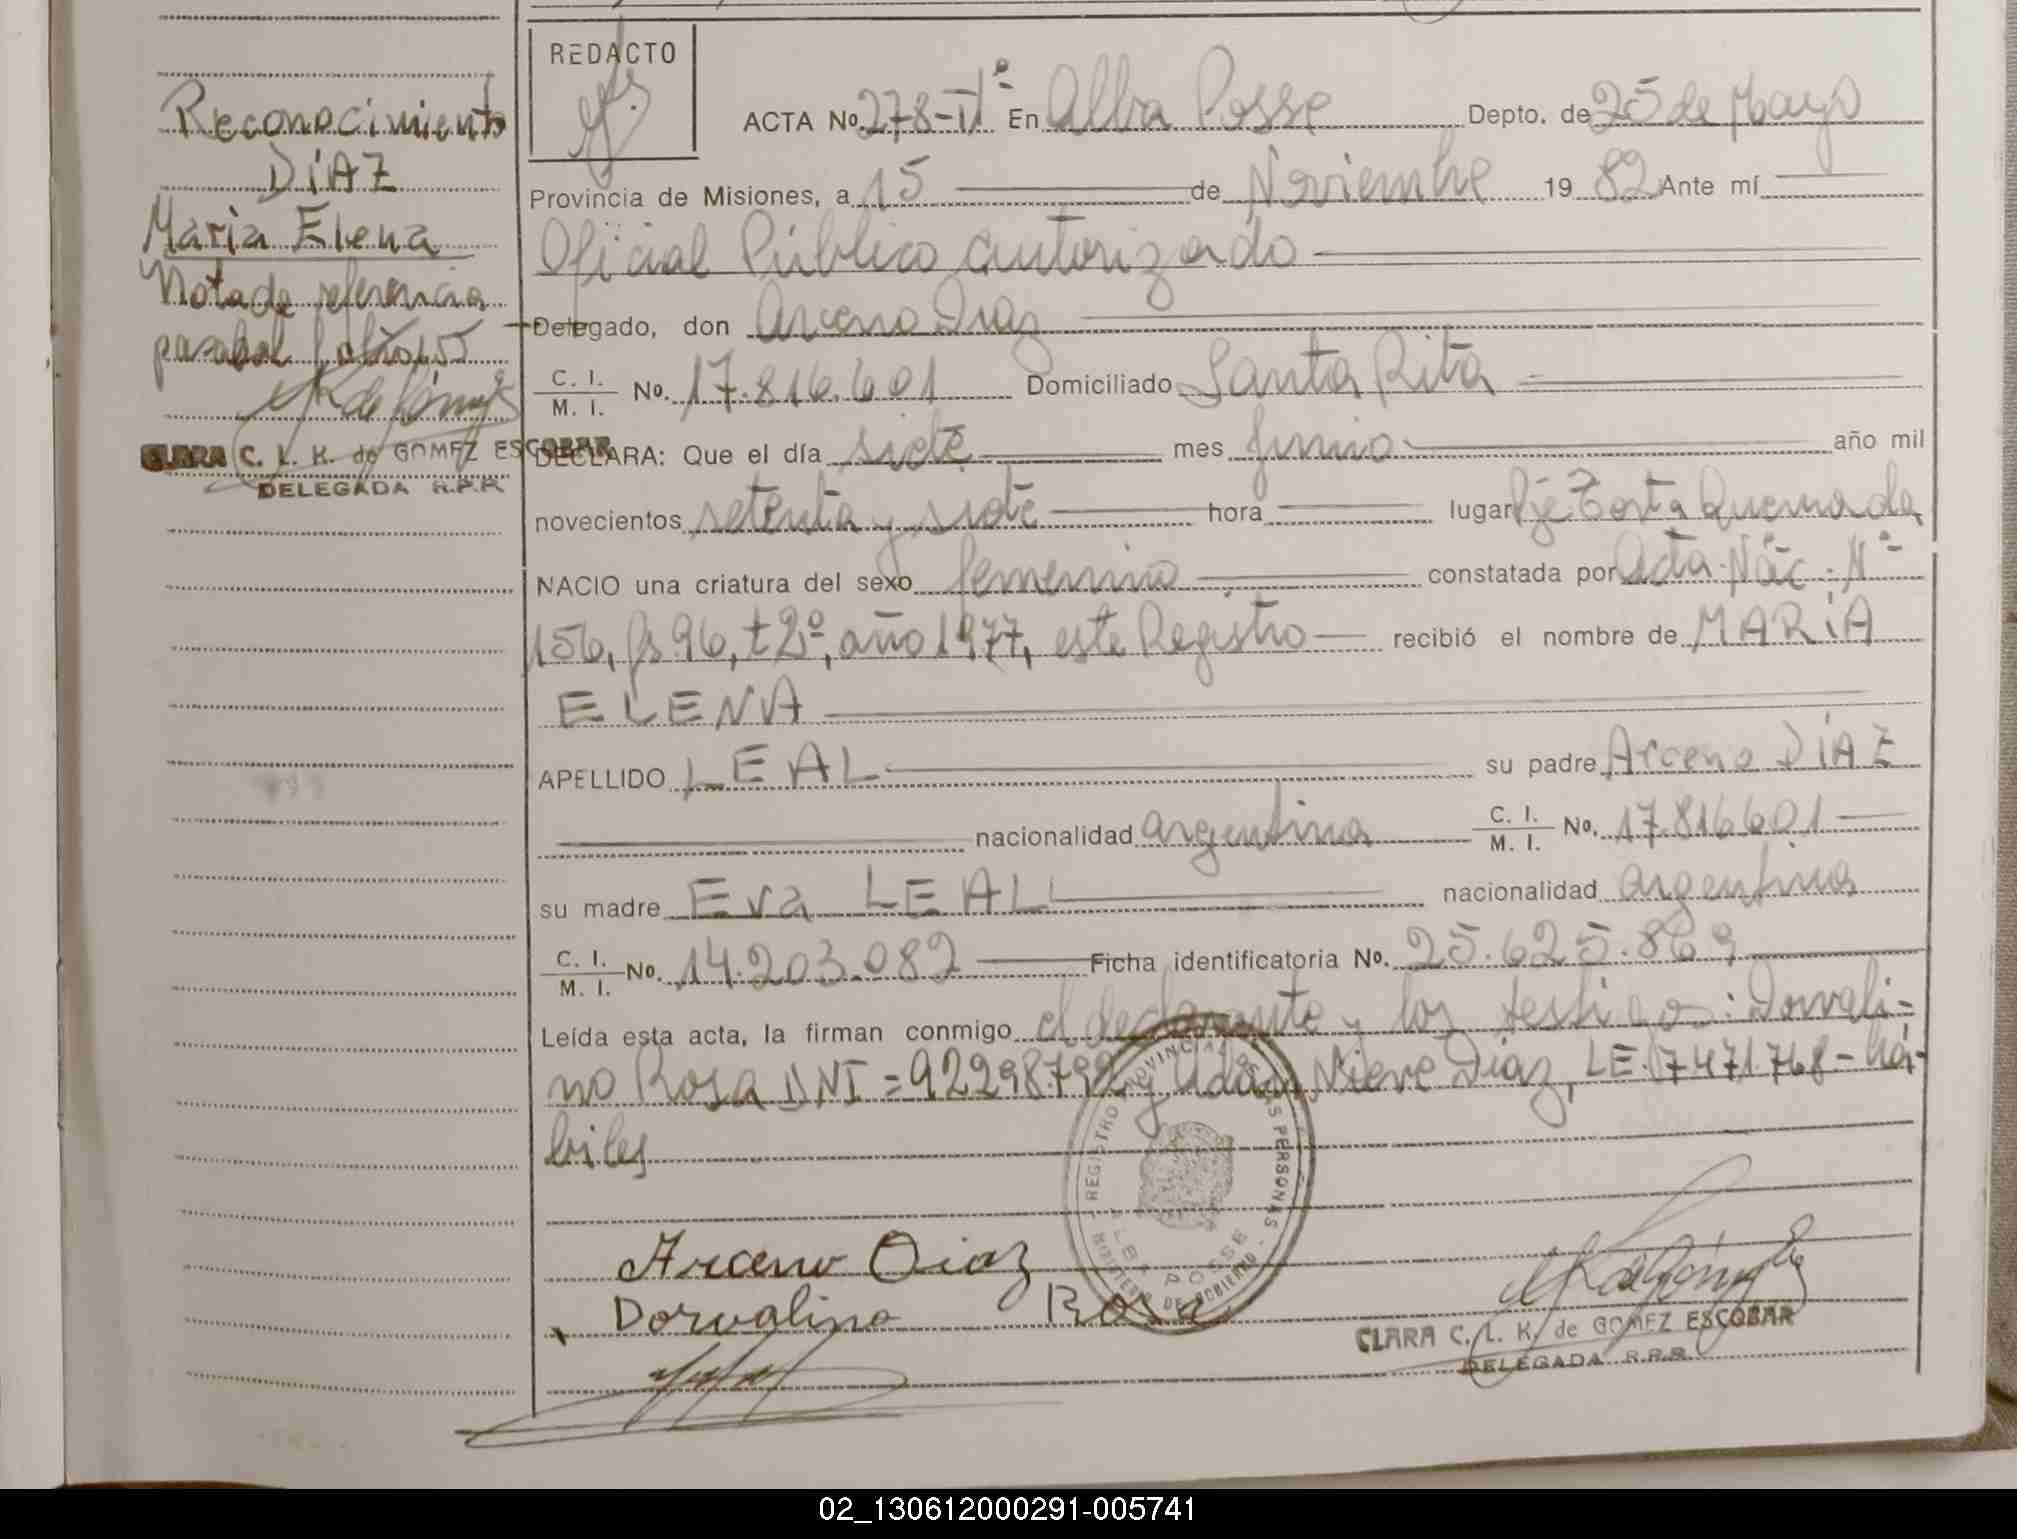 Reconocimiento
DÍAZ
Maria Elena
Nota de referencia
pasa al
CLARA C. L. K. de GOMEZ ESCOBAR
DELEGADA R.P.P.
REDACTO
ACTA No. 278-Tº En Alba Posse Depto. de 25 de Mayo
Provincia de Misiones, a 15 de Noviembre 19 82 Ante mí
Oficial Público autorizado
Delegado, don Arceno Diaz
C. I. M. I. No. 17.816.601 Domiciliado Santa Rita
DECLARA: Que el día siete mes junio año mil
novecientos setenta y siete hora lugar Pje Torta Quemada
NACIO una criatura del sexo femenino constatada por Acta Nac. Nº
156, fs 96, t 2º, año 1977, este Registro recibió el nombre de MARÍA
ELENA
APELLIDO LEAL su padre Arceno DÍAZ
nacionalidad argentina C. I. M. I. No. 17.816601
su madre Eva LEAL nacionalidad argentina
C. I. M. I. No. 14.203.082 Ficha identificatoria No. 25.625.869
Leída esta acta, la firman conmigo el declarante y los testigos: Dorvali-
no Rosa DNI = 92298792 y Adan Nieve Diaz, LE. 7471768 - há-
biles
REGISTRO PROVINCIAL DE LAS PERSONAS
ALBA POSSE
MINISTERIO DE GOBIERNO
Arceno Diaz
Dorvalino Rosa
CLARA C. L. K. de GOMEZ ESCOBAR
DELEGADA R.P.P.
02_130612000291-005741